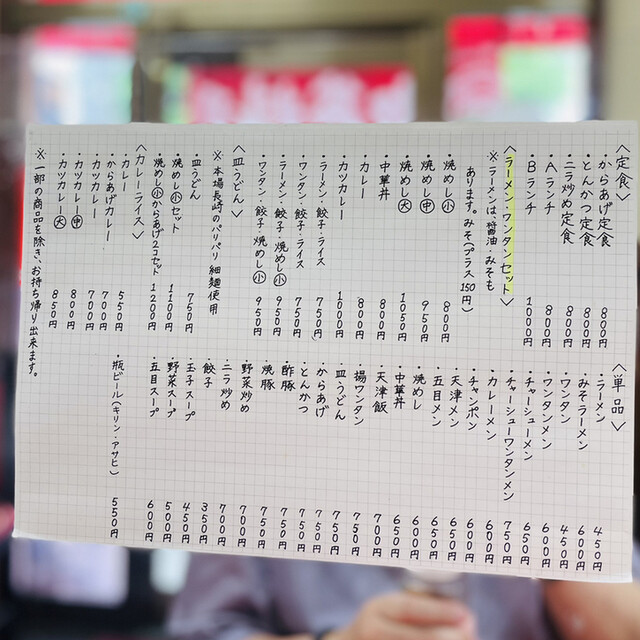 〈定食〉
・からあげ定食 800円
・とんかつ定食 800円
・ニラ炒め定食 800円
・Aランチ 800円
・Bランチ 1000円
〈ラーメン・ワンタンセット〉
※ラーメンは、醤油・みそも
あります。みそ(プラス150円)
・焼めし小 800円
・焼めし中 950円
・焼めし大 1050円
・中華丼 800円
・カレー 800円
・カツカレー 1000円
・ラーメン・餃子・ライス 750円
・ワンタン・餃子・ライス 750円
・ラーメン・餃子・焼めし小 950円
・ワンタン・餃子・焼めし小 950円
〈皿うどん〉
※本場長崎のパリパリ細麺使用
・皿うどん 750円
・焼めし小セット 1100円
・焼めし小からあげ2コセット 1200円
〈カレーライス〉
・カレー 550円
・からあげカレー 700円
・カツカレー 700円
・カツカレー中 800円
・カツカレー大 850円
※一部の商品を除き、お持ち帰り出来ます。
〈単品〉
・ラーメン 450円
・みそラーメン 600円
・ワンタン 450円
・ワンタンメン 600円
・チャーシューメン 650円
・チャーシューワンタンメン 750円
・カレーメン 600円
・チャンポン 600円
・天津メン 650円
・五目メン 650円
・焼めし 600円
・中華丼 650円
・天津飯 700円
・揚ワンタン 750円
・皿うどん 750円
・からあげ 750円
・とんかつ 750円
・酢豚 750円
・焼豚 750円
・野菜炒め 700円
・ニラ炒め 700円
・餃子 350円
・玉子スープ 450円
・野菜スープ 500円
・五目スープ 600円
・瓶ビール(キリン・アサヒ) 550円